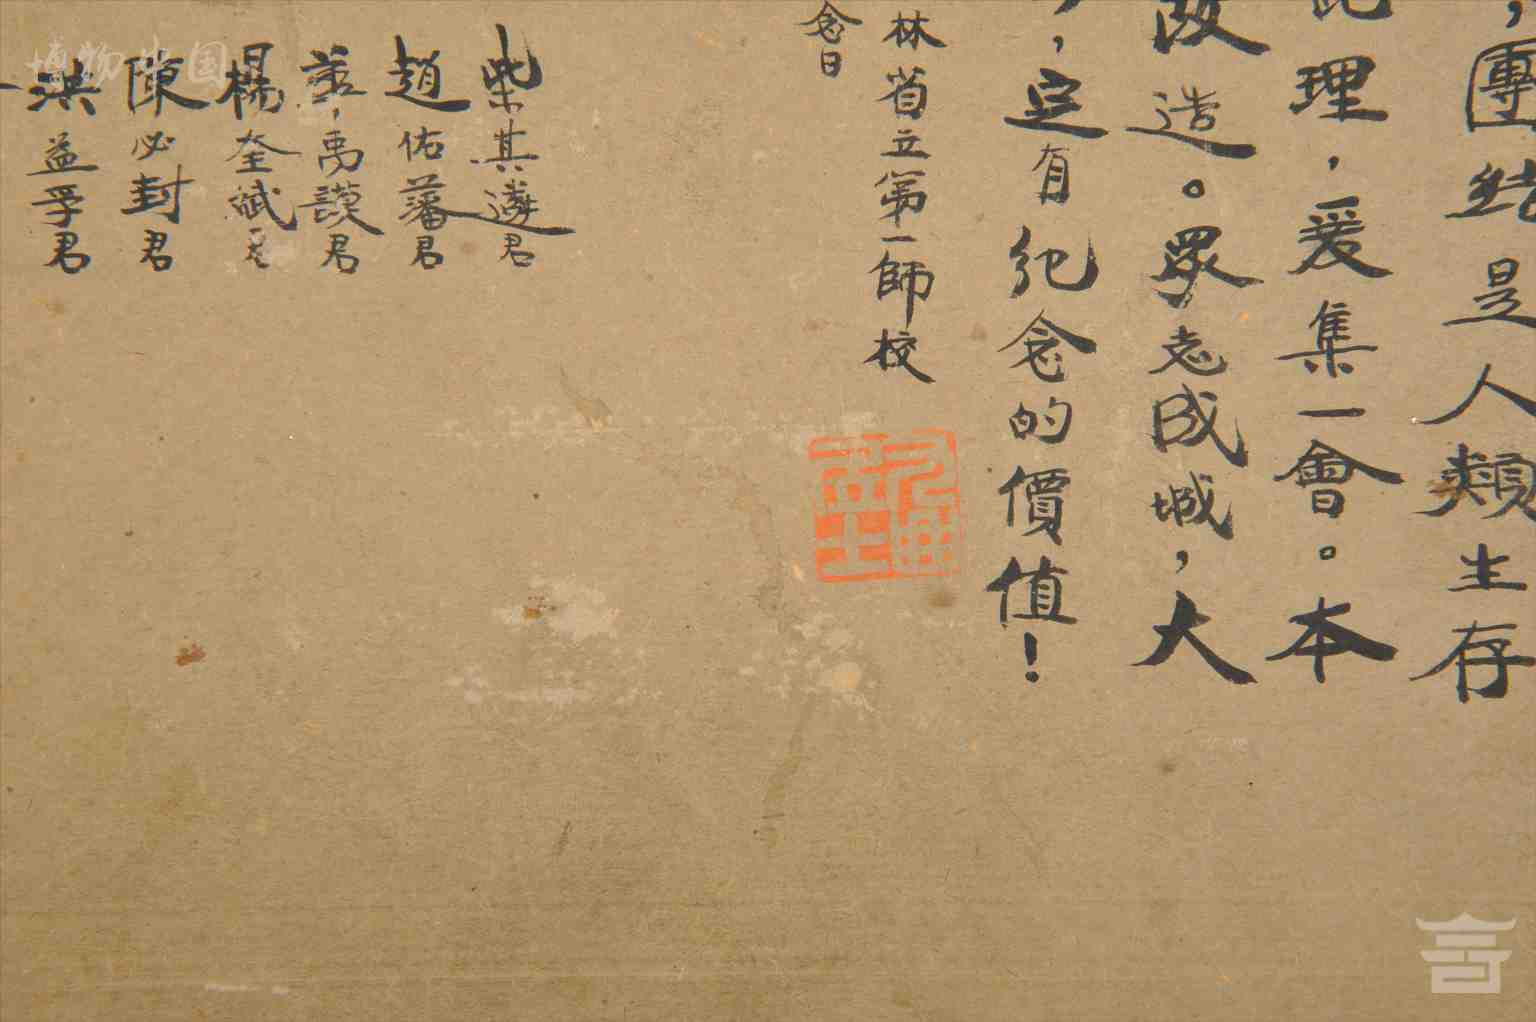 ，團結是人類生存
理，爰集一會。本
改造。眾志成城，大
，定有紀念的價值！
林省立第一師校
念日
柴其遴君
趙佑藩君
禹謨君
楊奎斌君
陳必封君
洪益孚君